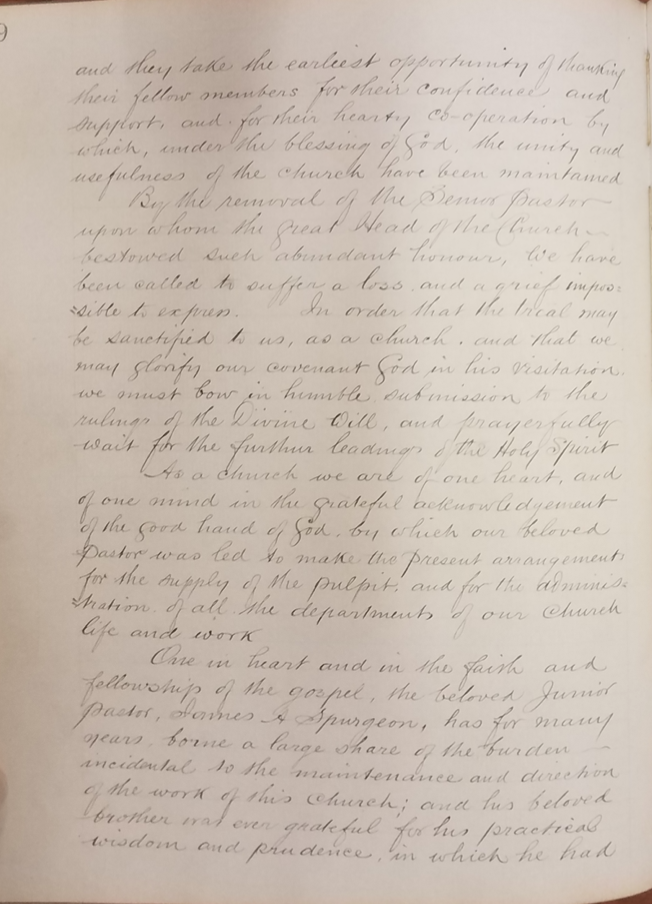 9
and they take the earliest opportunity of thanking
their fellow members for their confidence and
support, and for their hearty co-operation by
which, under the blessing of God, the unity and
usefulness of the church have been maintained
By the removal of the Senior Pastor
upon whom the great Head of the Church
bestowed such abundant honour, We have
been called to suffer a loss and a grief impos=
=sible to express. In order that the trial may
be sanctified to us, as a church, and that we
may glorify our covenant God in his visitation.
we must bow in humble submission to the
rulings of the Divine Will, and prayerfully
wait for the further leadings of the Holy Spirit
As a church we are of one heart, and
of one mind in the grateful acknowledgement
of the good hand of God, by which our beloved
Pastor was led to make the present arrangements
for the supply of the pulpit, and for the adminis=
=tration of all the departments of our Church
life and work
One in heart and in the faith and
fellowship of the gospel, the beloved Junior
Pastor, James A Spurgeon, has for many
years borne a large share of the burden
incidental to the maintenance and direction
of the work of this Church; and his beloved
brother was ever grateful for his practical
wisdom and prudence, in which he had